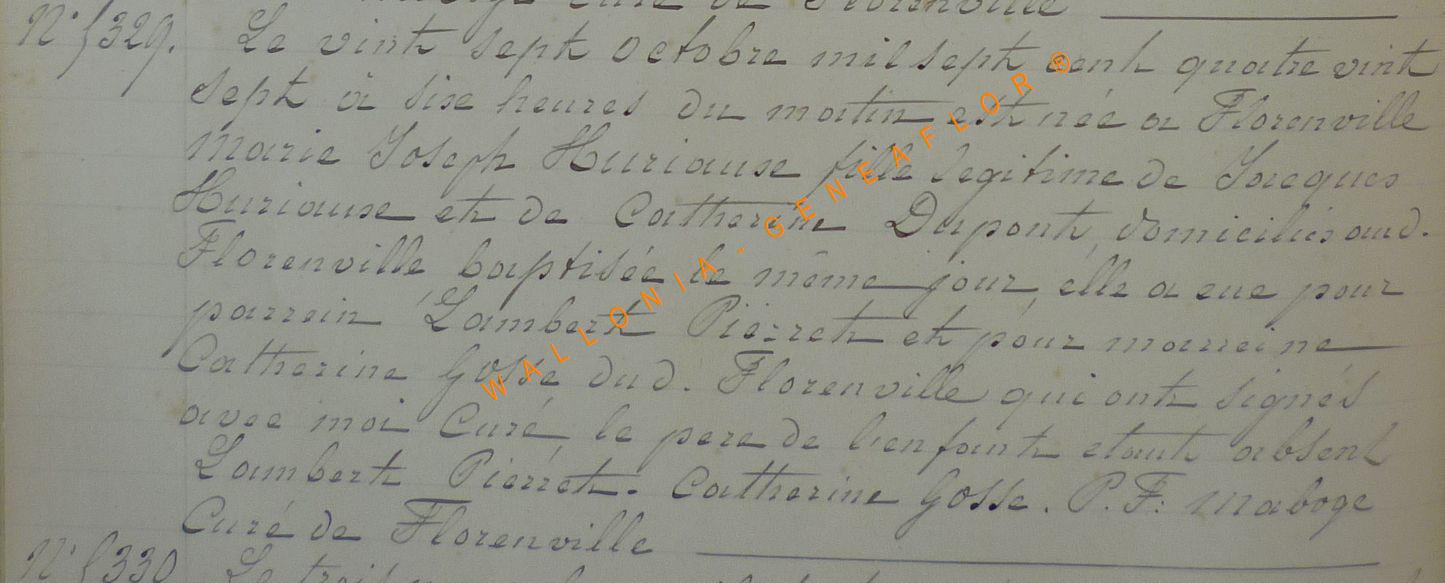 Curé de Florenville
N° 1329. Le vint sept octobre mil sept cent quatre vint
sept à sixe heures du matin est née a Florenville
Marie Joseph Huriause fille legitime de Jacques
Huriause et de Catherine Dupont, domiciliés aud.
Florenville baptisée le même jour, elle a eue pour
parrein Lambert Pierret et pour marreine
Catherine Gosse dud. Florenville qui ont signés
avec moi Curé le pere de l'enfant etant absent
Lambert Pierret. Catherine Gosse. P. F. Maboge
Curé de Florenville
N° 1330 Le
WALLONIA - GENEAFLOR ®